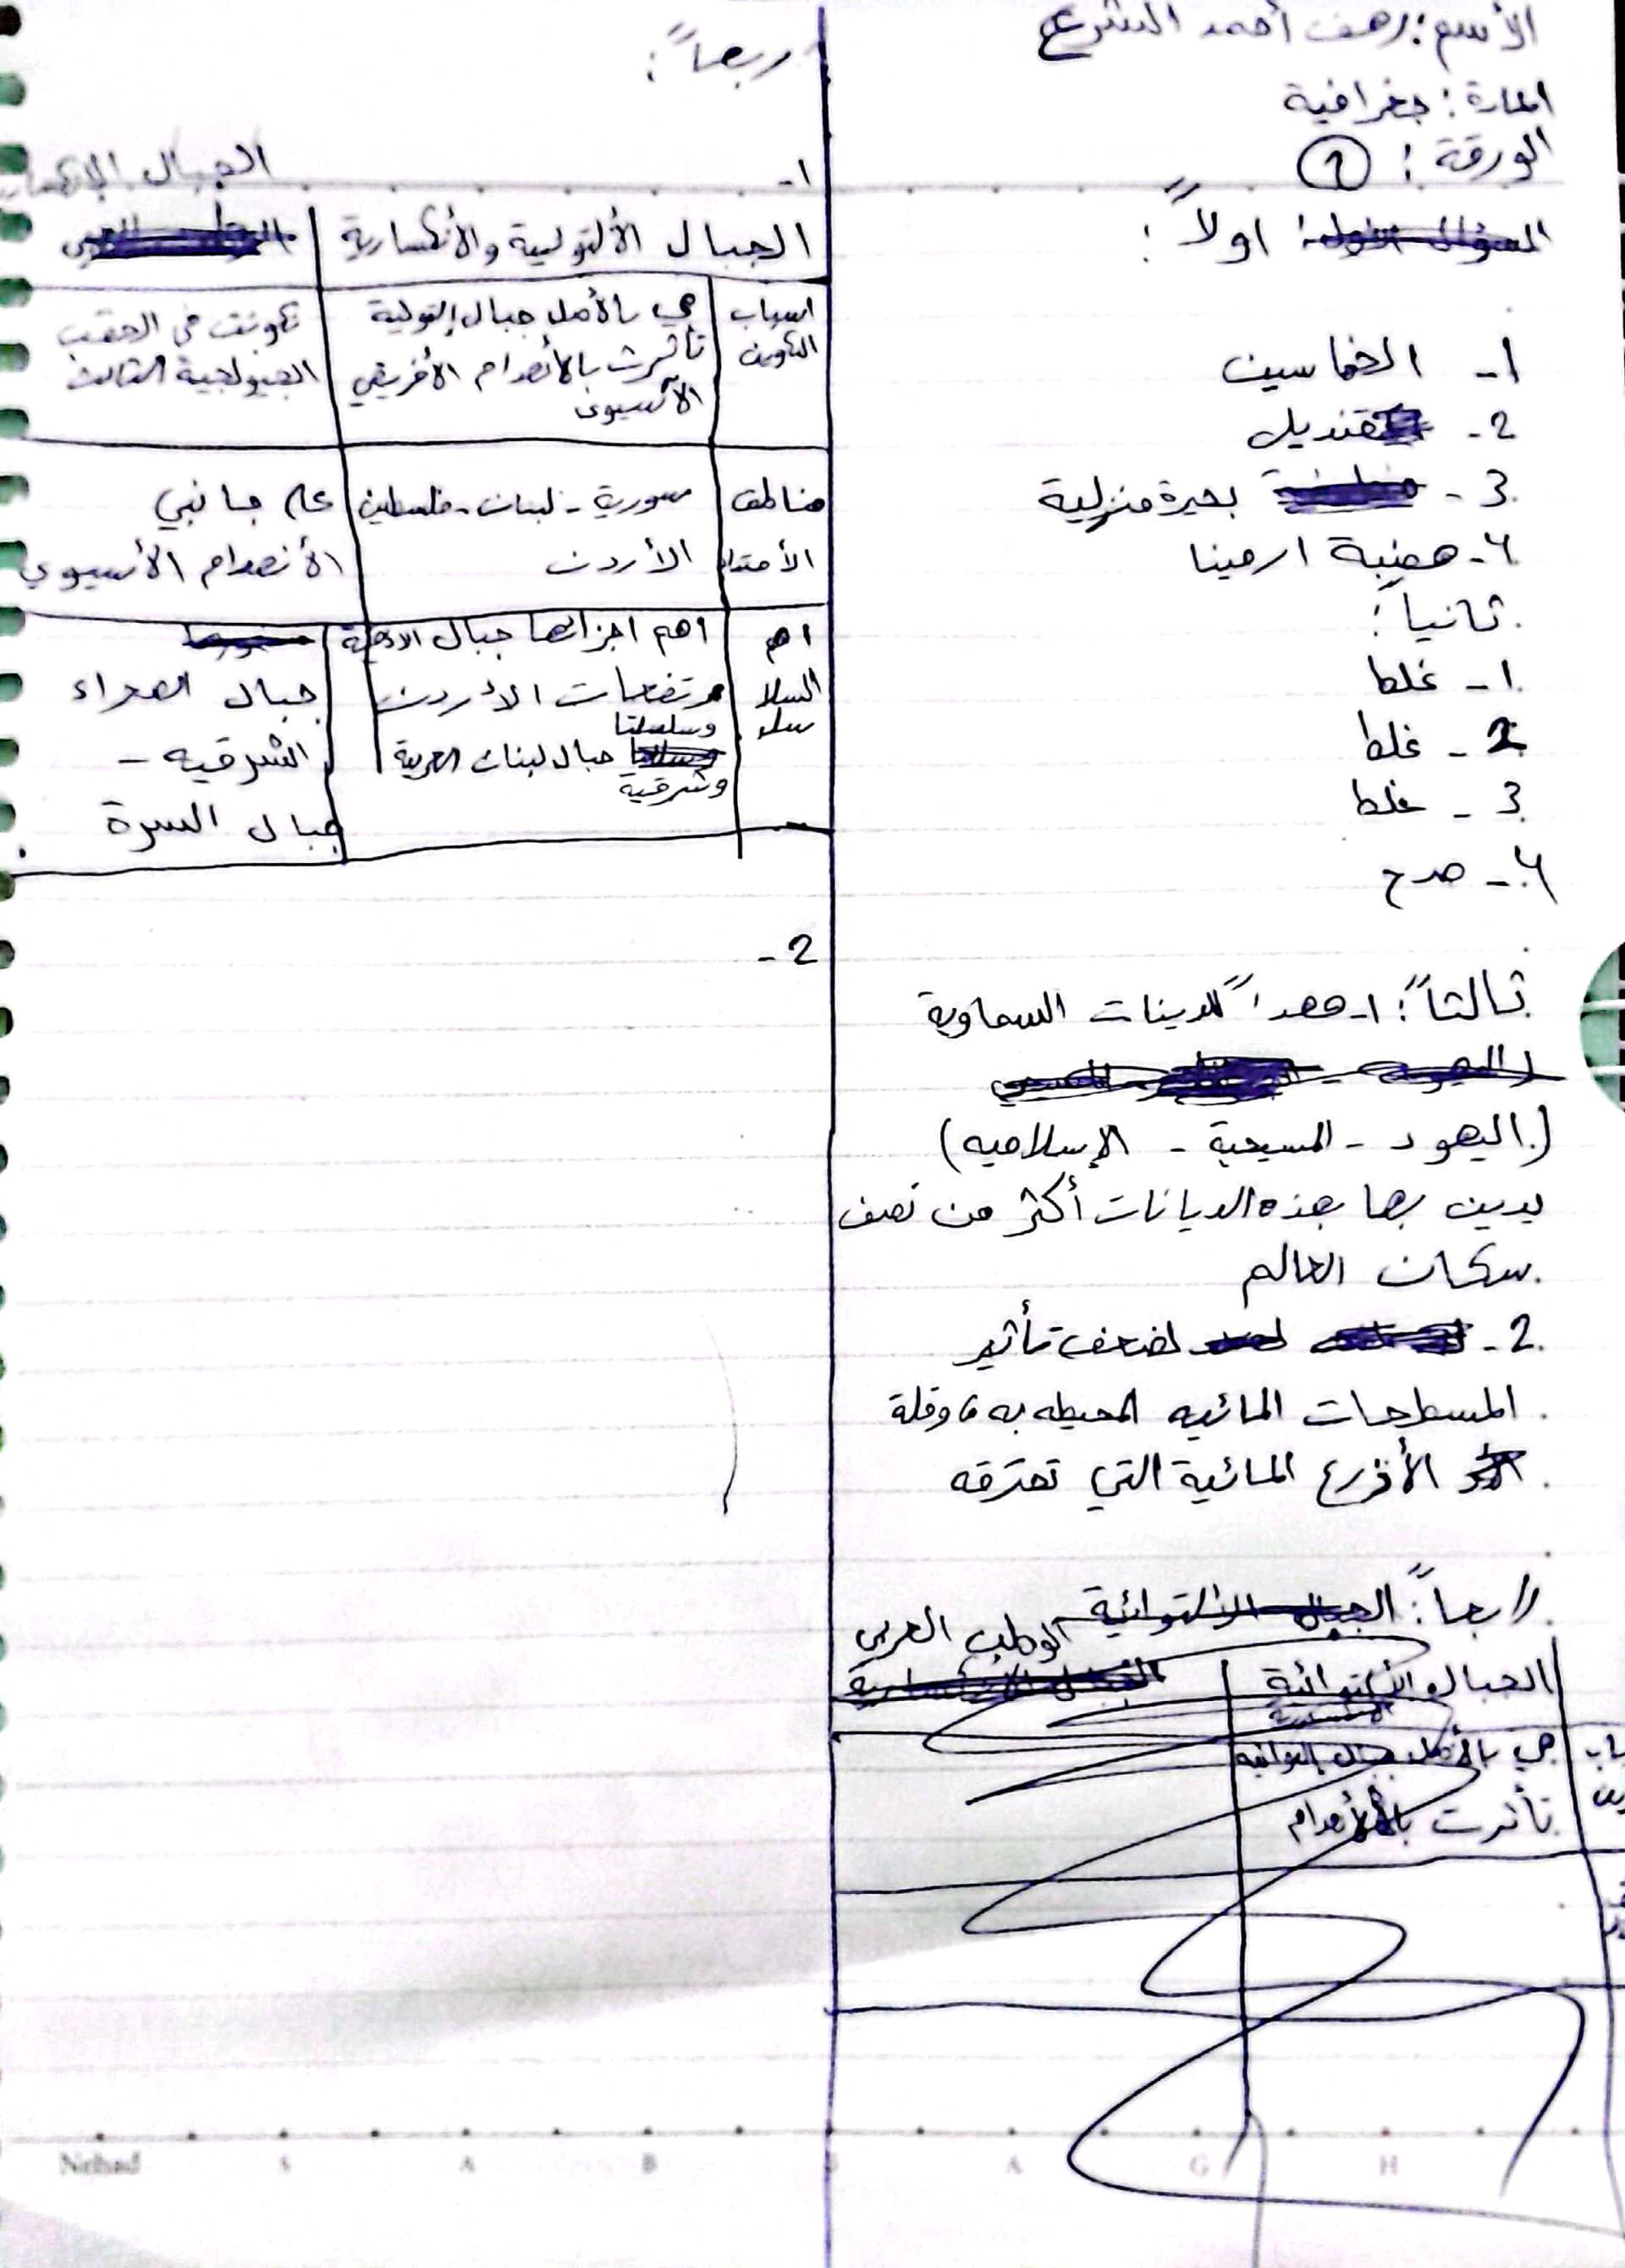 الأسم: رهف أحمد الشرع
المادة: جغرافية
الورقة: 1
اولاً:
1- الخماسين
2- قنديل
3- بحيرة منزلية
4- هضبة ارمينا
ثانياً:
1- غلط
2- غلط
3- غلط
4- صح
ثالثاً: 1- مهداً للدينات السماوية
(اليهود - المسيحية - الإسلاميه)
يدين بها بهذه الديانات أكثر من نصف
سكان العالم
2- لضعف تأثير
المسطحات المائيه المحيطه به، وقلة
الأذرع المائية التي تخترقه
رابعاً:
الوطن العربي
ربعاً:
1-
الجبال الألتولية والأنكسارية
الجبال
اسباب التكوين
هي بالأصل جبال إلتولية
تأثرت بالأنهدام الأفريقي
الآسيوي
تكونت في الحقب
الجيولوجية الثالث
مناطق الأمتداد
سورية - لبنان - فلسطين
الأردن
على جانبي
الأنهدام الأسيوي
اهم السلاسل
اهم اجزائها جبال
مرتفعات الأردن
وسلسلتا
جبال لبنان الغربية
وشرقية
جبال الصحراء
الشرقيه -
جبال السرة
2-
Nehad S A B A G H